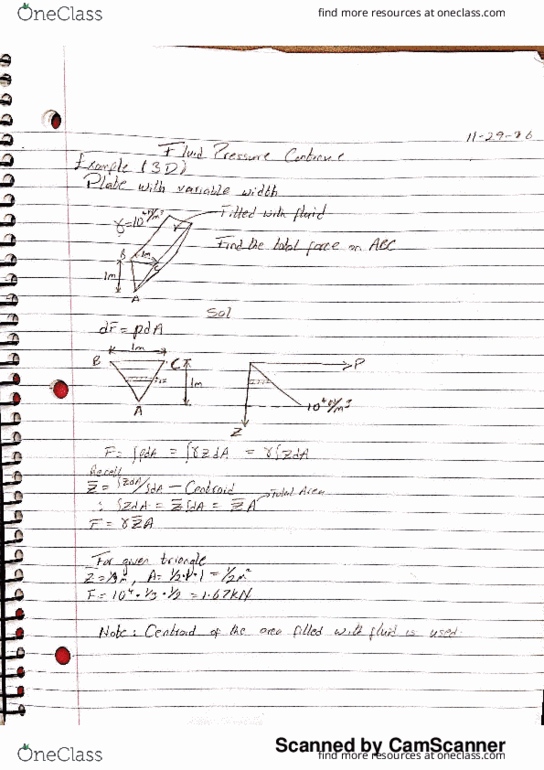 OneClass
find more resources at oneclass.com
11-29-96
Fluid Pressure Continue
Example (3D)
Plate with variable width
γ=10⁴ N/m³
Filled with fluid
Find the total force on ABC
B
1m
C
1m
A
Sol
dF = pdA
1m
B
C
1m
A
P
Z
F = ∫pdA = ∫γzdA = γ∫zdA
Recall
z̄ = ∫zdA/∫dA — Centroid
∴ ∫zdA = z̄∫dA = z̄A
Total Area
F = γz̄A
For given triangle
Z = 1/3 m, A = 1/2·1·1 = 1/2 m²
F = 10⁴ · 1/3 · 1/2 = 1.67kN
Note: Centroid of the area filled with fluid is used.
Scanned by CamScanner
OneClass
find more resources at oneclass.com